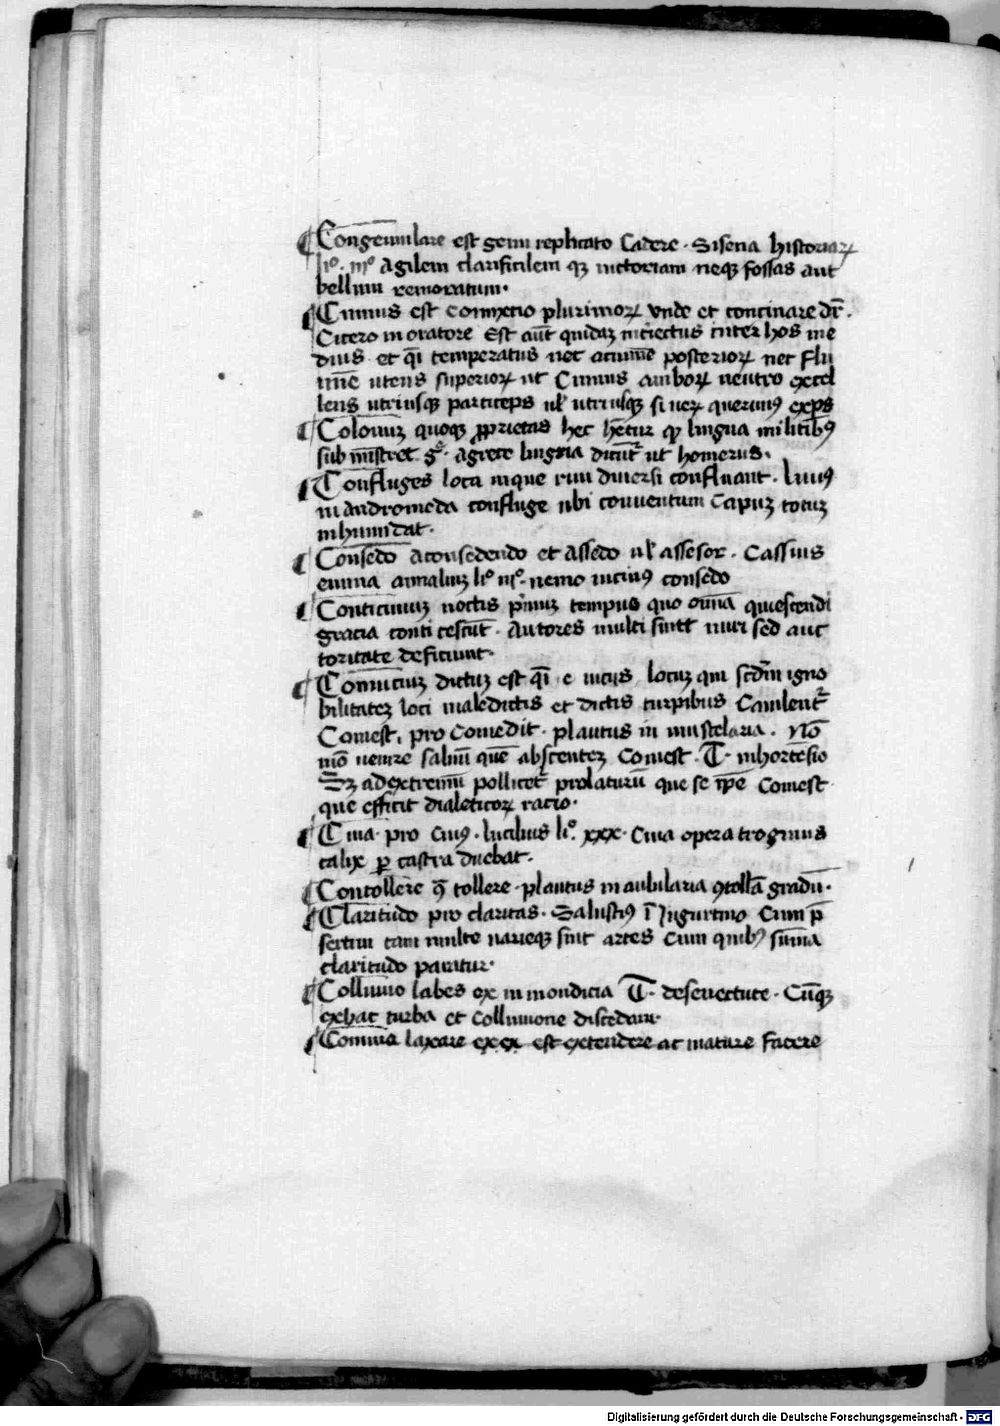 Congenulare est genu replicato Cadere · Sisena historiaꝝ
liº · iiiº Agilem clarificilem qꝫ victoriam neqꝫ fossas aut
bellum remoratum·
Cinnus est connexio plurimoꝝ vnde et concinare dr̄ ·
Cicero in oratore Est aūt quidaꝫ interiectus inter hos me
dius et q̄i temperatus nec acumīe posterioꝝ nec flu
mīe utens superioꝝ ut Cinnus amboꝝ neutro excel
lens utriusqꝫ particeps ul' utriusqꝫ si ueꝝ querimꝰ exps
Colouiꝫ quoqꝫ ꝓprietas hec hētur qꝫ lingua militibꝰ
sub mīstret gͦ · agrece lingua dicūt̄ ut homerus·
Confluges loca inque riui diuersi confluant · Liuiꝰ
in andromeda confluge ubi conuentum Capuꝫ totuꝫ
inhumidat·
Consedo aconsedendo et Assedo ul' assesor · Cassius
emina annaliuꝫ liº iiiº · nemo uiciuꝰ consedo
Conticiniuꝫ noctis p̄imuꝫ tempus quo oīnia quiescendi
gracia conti cescūt · Autores multi sunt niui sed auc
toritate deficiunt·
Conuiciuꝫ dictuꝫ est q̄i · e uicus locuꝫ qui scd̄m igno
bilitateꝫ loci maledictis et dictis turpibus Cauilent̄
Comest, pro Comedit · plautus in mustelaria · Nō
mō uenire salinū quē abscenteꝫ Comest · T · inhortēsio
Sꝫ ad extremū pollicet̄ prolaturū que se ip̄e Comest
que efficit dialeticoꝝ racio·
Cuia · pro Cuiꝰ · lucilius liº · xxx · Cuia opera trogmus
calix ꝑ castra duebat·
Contollere q̄ tollere · plautus in aulularia ꝯtollā gradū·
Claritudo pro claritas · Salustiꝰ ī Jugurtino Cum p̄
sertim tam multe uarieqꝫ sint artes Cum quibꝰ sūma
claritudo paratur·
Colluuio labes ex in mondicia T · desenectute · Cūqꝫ
exhac turba et colluuione discedam·
Comuia laxare ex ex est extendere ac mature facere
Digitalisierung gefördert durch die Deutsche Forschungsgemeinschaft - DFG